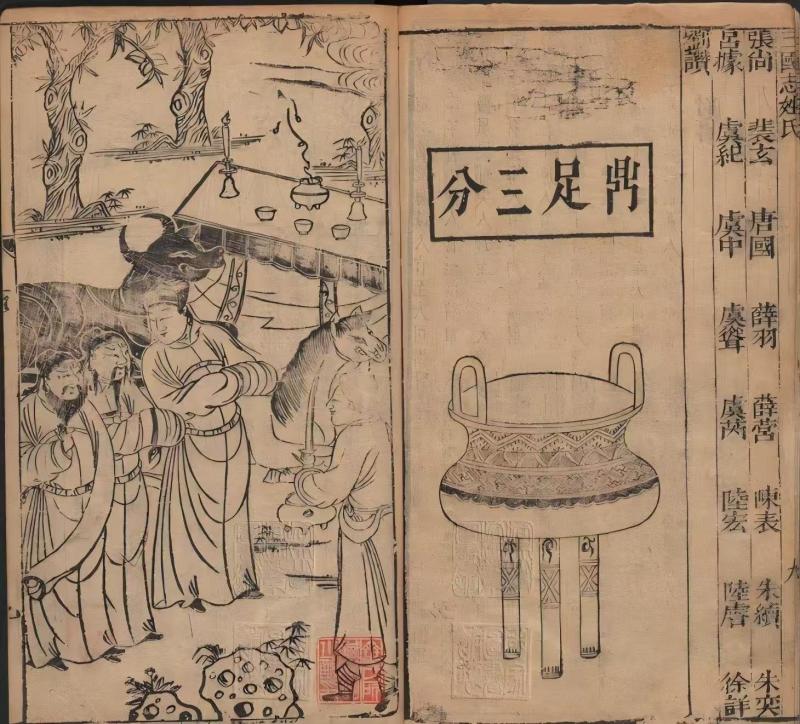 三國志姓氏
張尚　裴玄　唐國　薛羽　薛营　陳表　朱續　朱
呂據　虞紀　虞中　虞聳　虞芮　陸宏　陸　徐詳
劉讃
九
鼎足三分